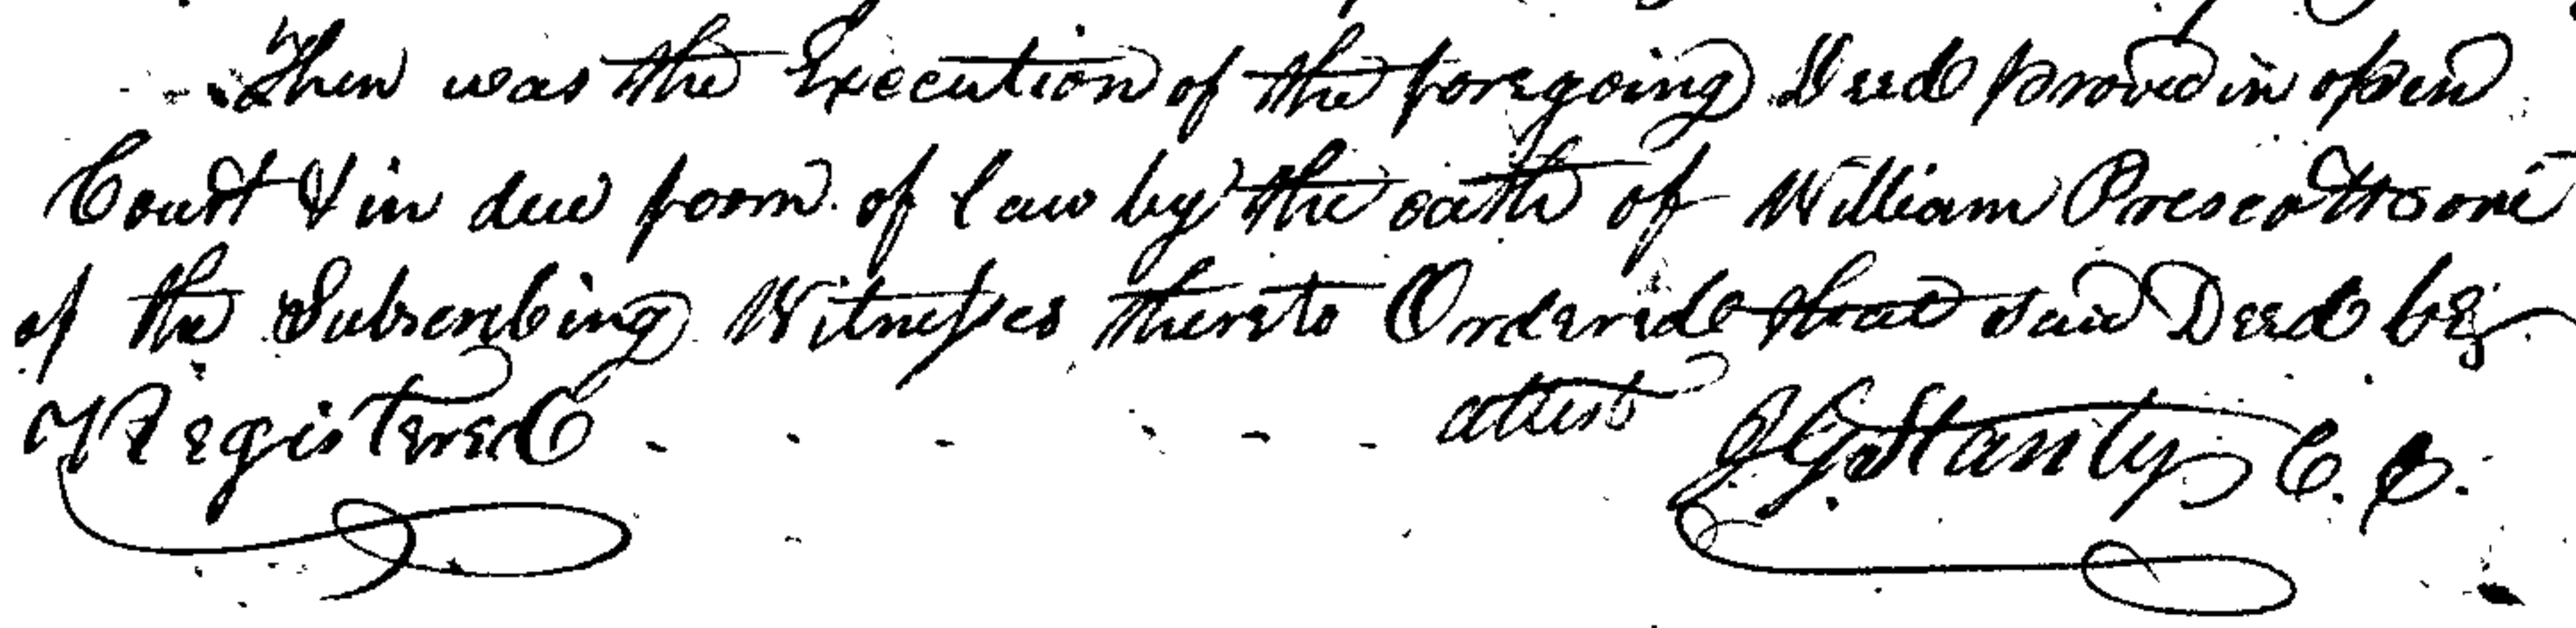 Then was the Execution of the foregoing Deed proved in open
Court & in due form of law by the oath of William Prescott one
of the Subscribing Witnesses thereto Ordered that said Deed be
Registered attest J. G. Stanly C. C.